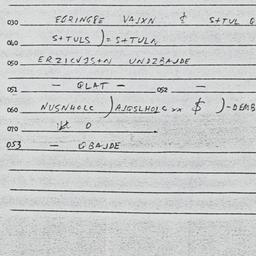 030 EGRINGEE VAJXN & S+TUL
040 S+TULS ) = S+TULN
050 ERZICVJS+N UNDZBAJDE
051 — GLAT — 052 —
060 NUSNHOLC ) AJGSLHOLC xx $ ) - DEMB
070 0
053 — GBAJDE